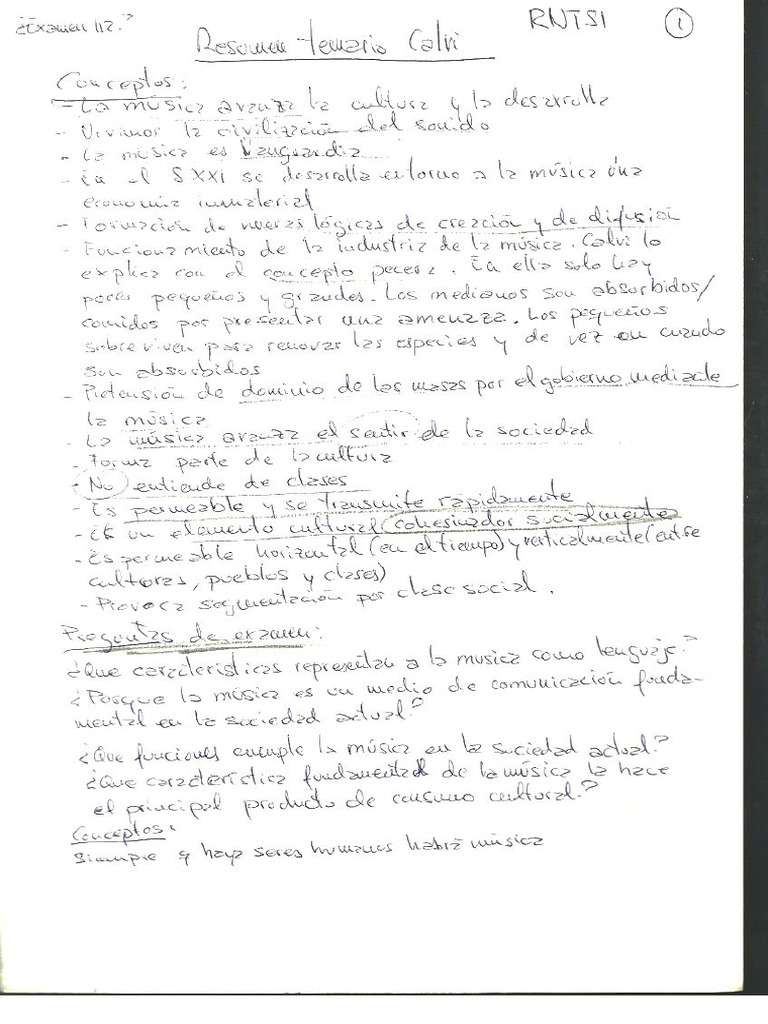 ¿Examen 112.?
RNTSI
1
Resumen temario Calvi
Conceptos:
- La música avanza la cultura y la desarrolla
- Vivimos la civilización del sonido
- La música es vanguardia
- En el SXXI se desarrolla entorno a la música una
economía inmaterial
- Formación de nuevas lógicas de creación y de difusión
- Funcionamiento de la industria de la música. Calvi lo
explica con el concepto pecera. En ella solo hay
peces pequeños y grandes. Los medianos son absorbidos/
comidos por presentar una amenaza. Los pequeños
sobreviven para renovar las especies y de vez en cuando
son absorbidos
- Pretensión de dominio de las masas por el gobierno mediante
la música
- La música avanza el sentir de la sociedad
- Forma parte de la cultura
- No entiende de clases
- Es permeable y se transmite rapidamente
- Es un elemento cultural (cohesinador socialmente
- Es permeable horizontal (en el tiempo) y verticalmente (entre
culturas, pueblos y clases)
- Provoca segmentación por clase social.
Preguntas de examen:
¿Que caracteristicas representan a la musica como lenguaje?
¿Porque la música es un medio de comunicación funda-
mental en la sociedad actual?
¿Que funciones cumple la música en la sociedad actual?
¿Que característica fundamental de la música la hace
el principal producto de consumo cultural?
Conceptos:
Siempre q haya seres humanos habrá música